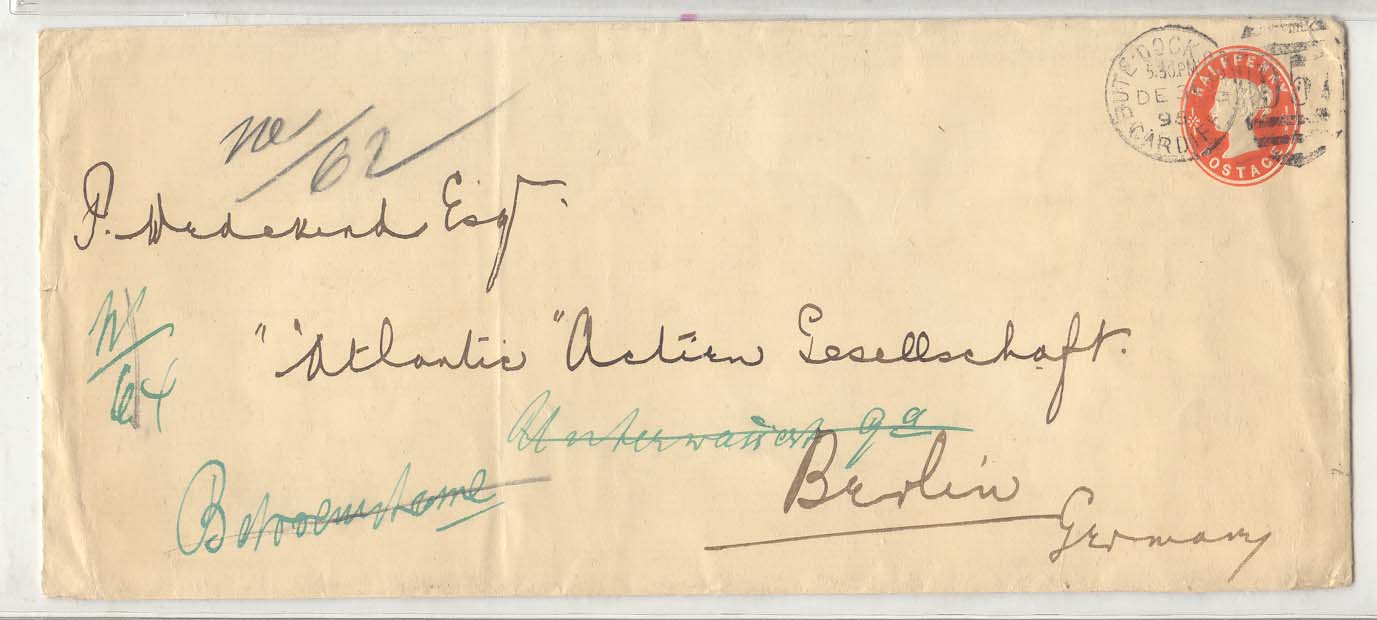 BUTE-DOCKS
5.30PM
DE
95
CARDIFF
HALFPENNY
POSTAGE
W/62
P. Wedekind Esqr.
"Atlantic" Actien Gesellschaft.
W/64
Unterwasserstr 9a
Berlin
Germany